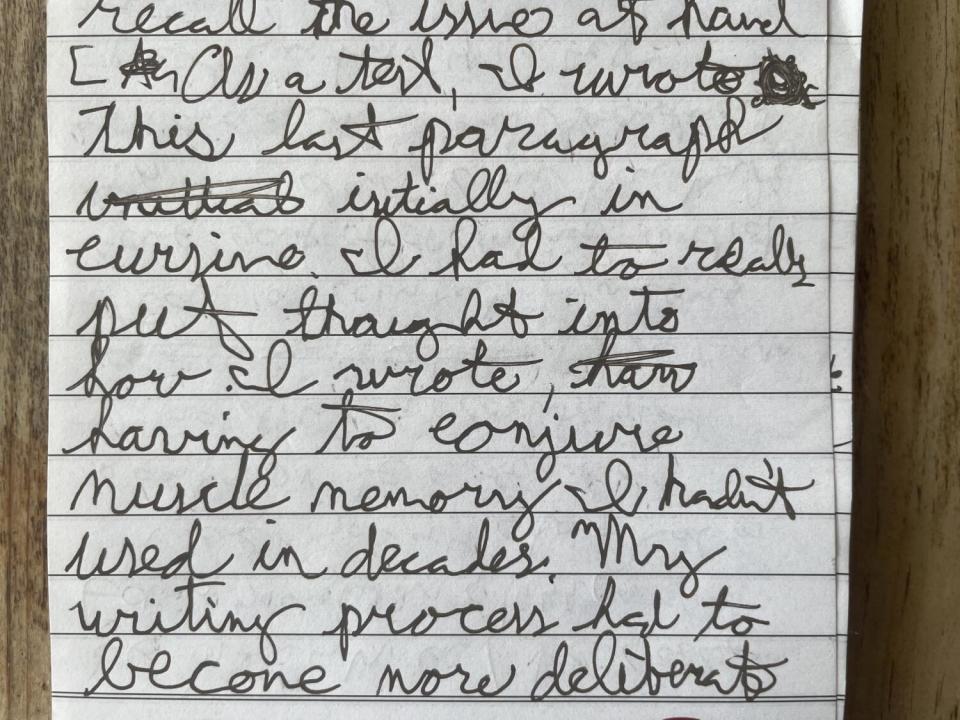 recall the issue at hand
[ As a test, I wrote
This last paragraph
initially in
cursive. I had to really
put thought into
how I wrote,
having to conjure
muscle memory I hadn't
used in decades. My
writing process had to
become more deliberate